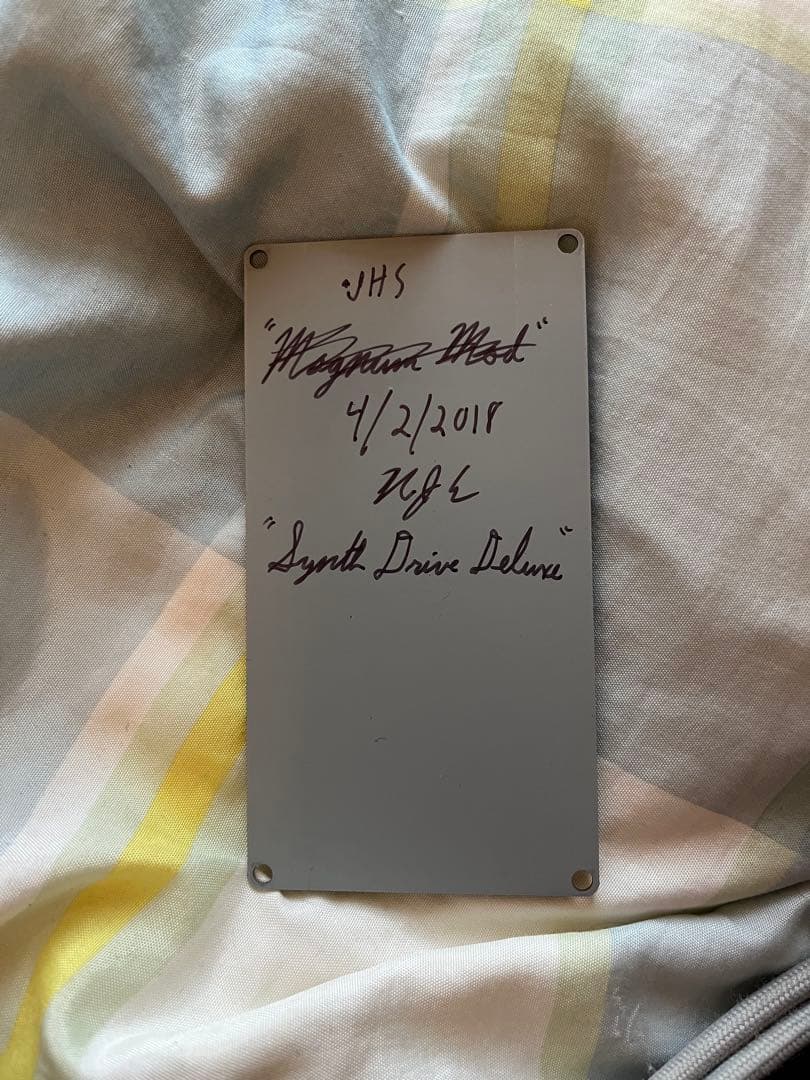 JHS
"Magnum Mod"
4/2/2018
NJE
"Synth Drive Deluxe"